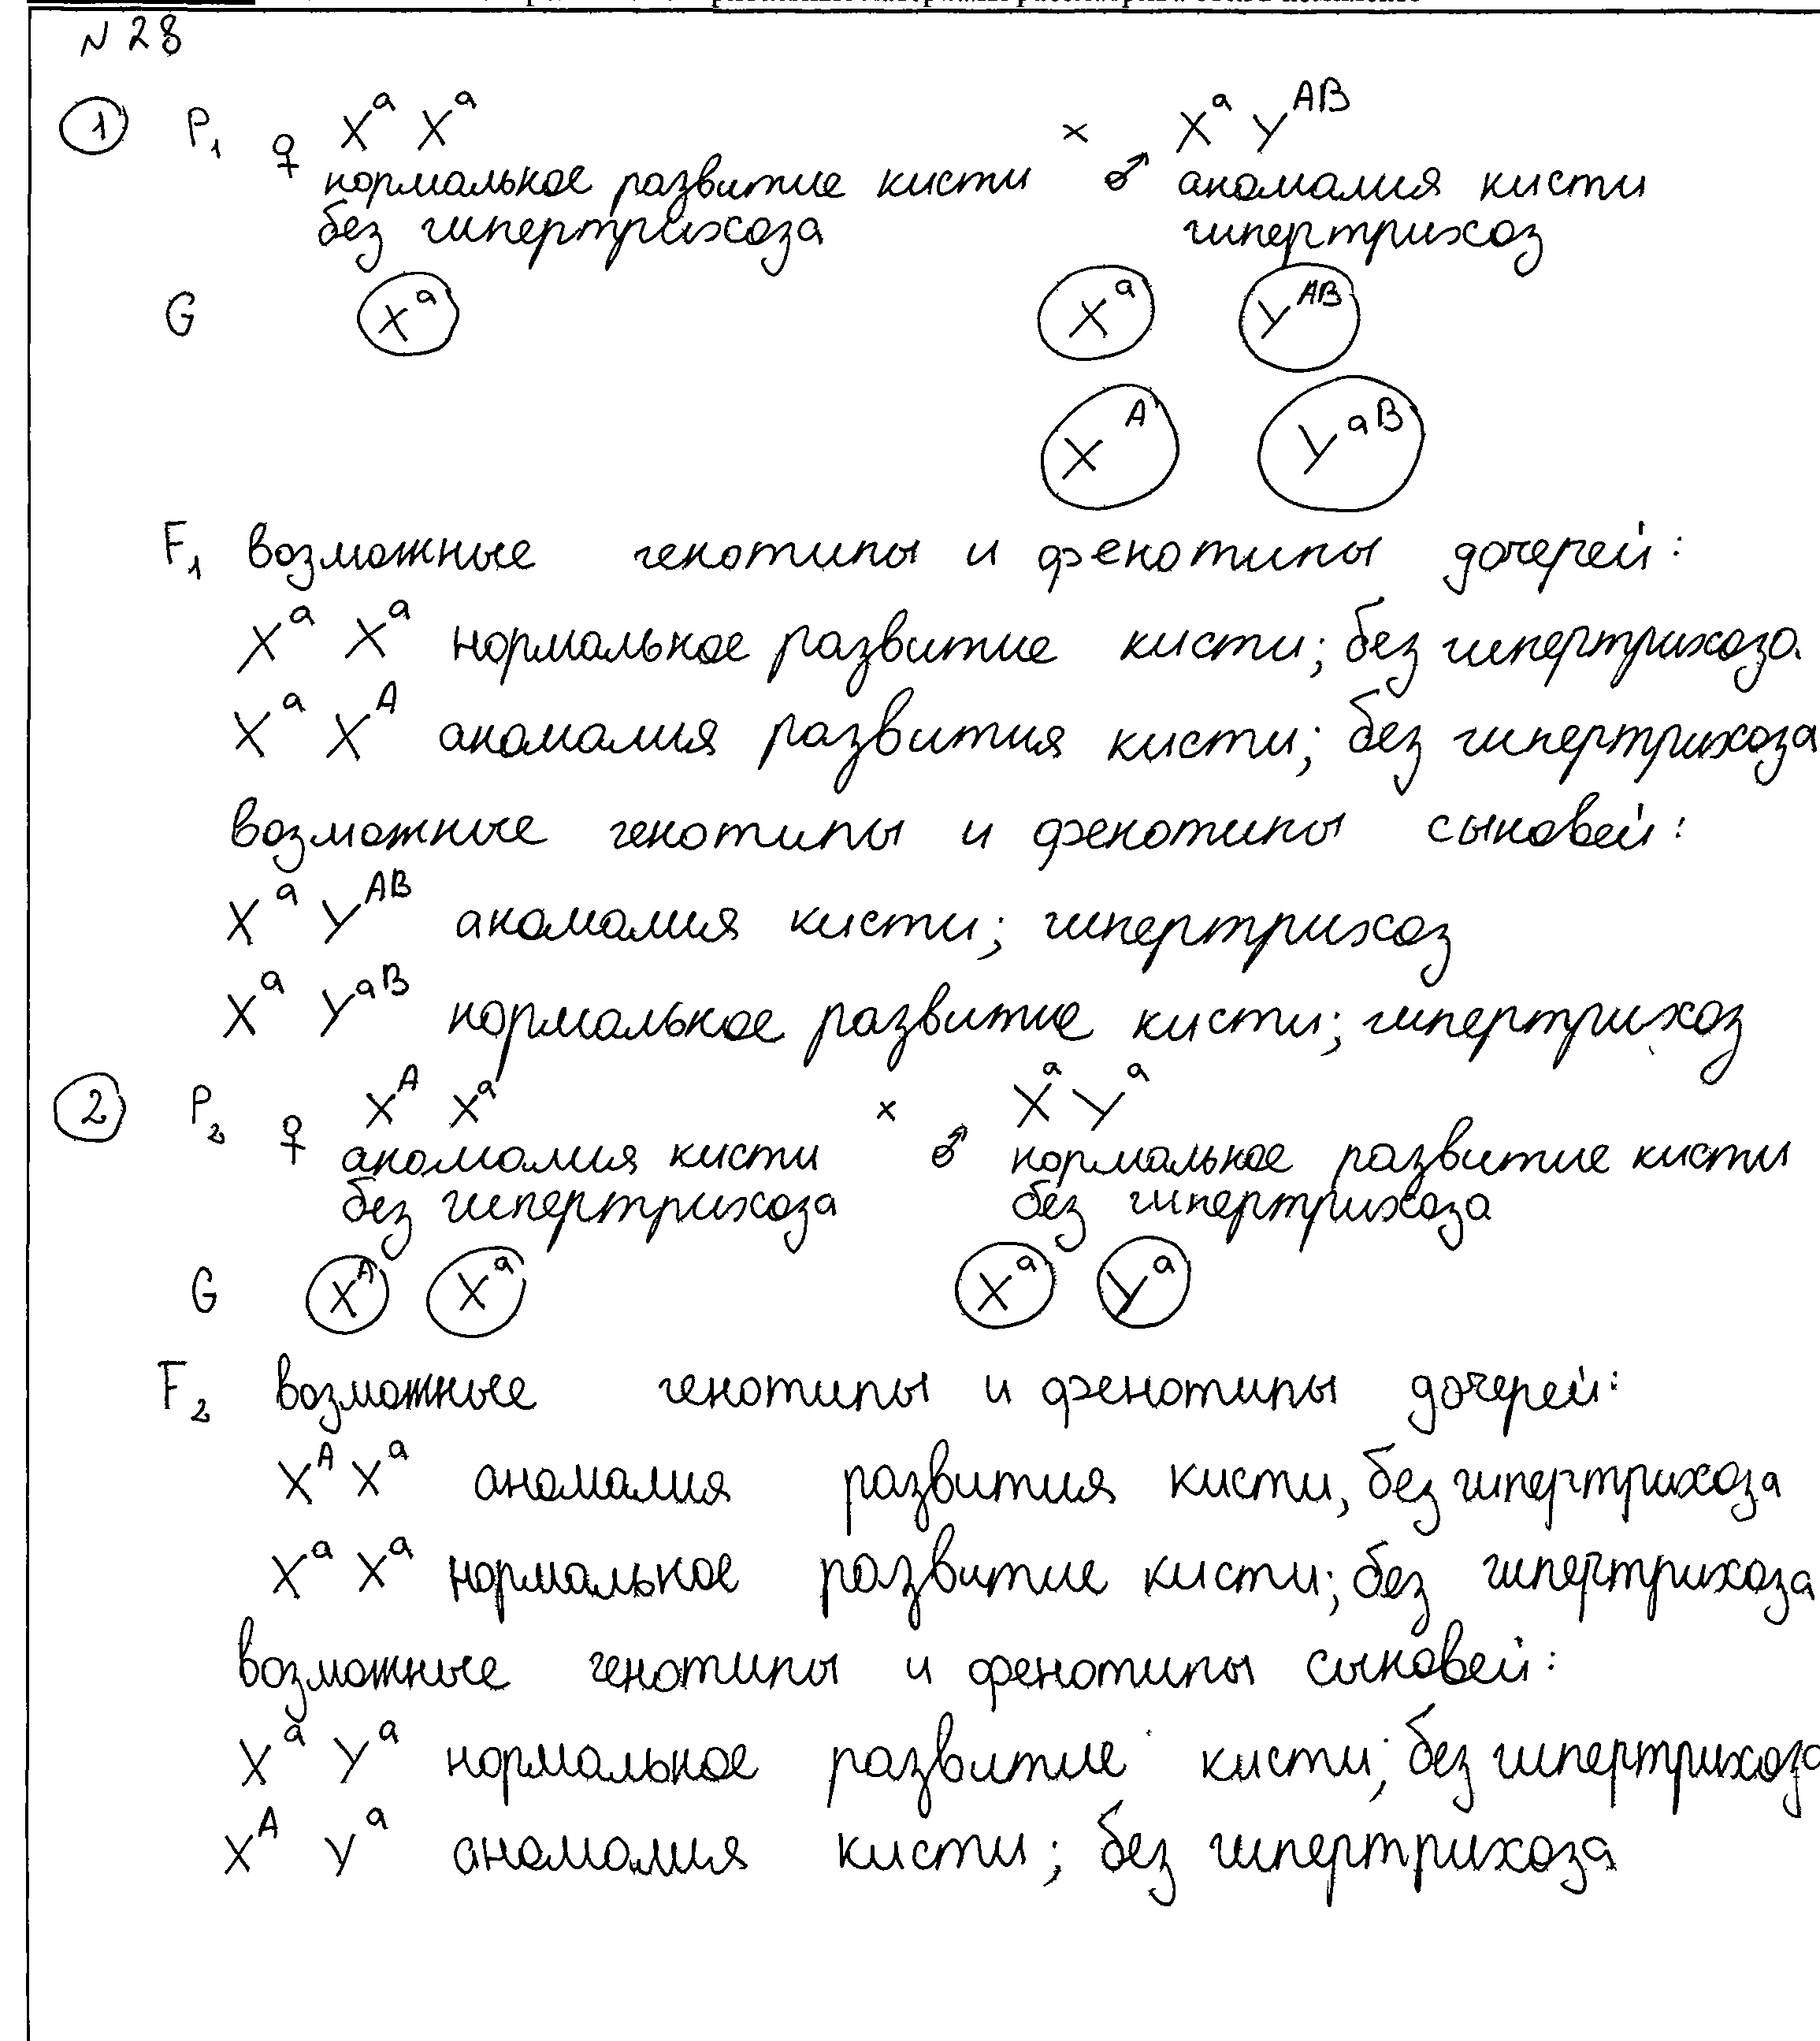 N 28
1 P₁ ♀ Xᵃ Xᵃ × ♂ Xᵃ Yᴬᴮ
нормальное развитие кисти аномалия кисти
без гипертрихоза гипертрихоз
G Xᵃ Xᵃ Yᴬᴮ
Xᴬ Yᵃᴮ
F₁ возможные генотипы и фенотипы дочерей:
Xᵃ Xᵃ нормальное развитие кисти; без гипертрихоза.
Xᵃ Xᴬ аномалия развития кисти; без гипертрихоза
возможные генотипы и фенотипы сыновей:
Xᵃ Yᴬᴮ аномалия кисти; гипертрихоз
Xᵃ Yᵃᴮ нормальное развитие кисти; гипертрихоз
2 P₂ ♀ Xᴬ Xᵃ × ♂ Xᵃ Yᵃ
аномалия кисти нормальное развитие кисти
без гипертрихоза без гипертрихоза
G Xᴬ Xᵃ Xᵃ Yᵃ
F₂ возможные генотипы и фенотипы дочерей:
Xᴬ Xᵃ аномалия развития кисти, без гипертрихоза
Xᵃ Xᵃ нормальное развитие кисти; без гипертрихоза
возможные генотипы и фенотипы сыновей:
Xᵃ Yᵃ нормальное развитие кисти; без гипертрихоза
Xᴬ Yᵃ аномалия кисти; без гипертрихоза